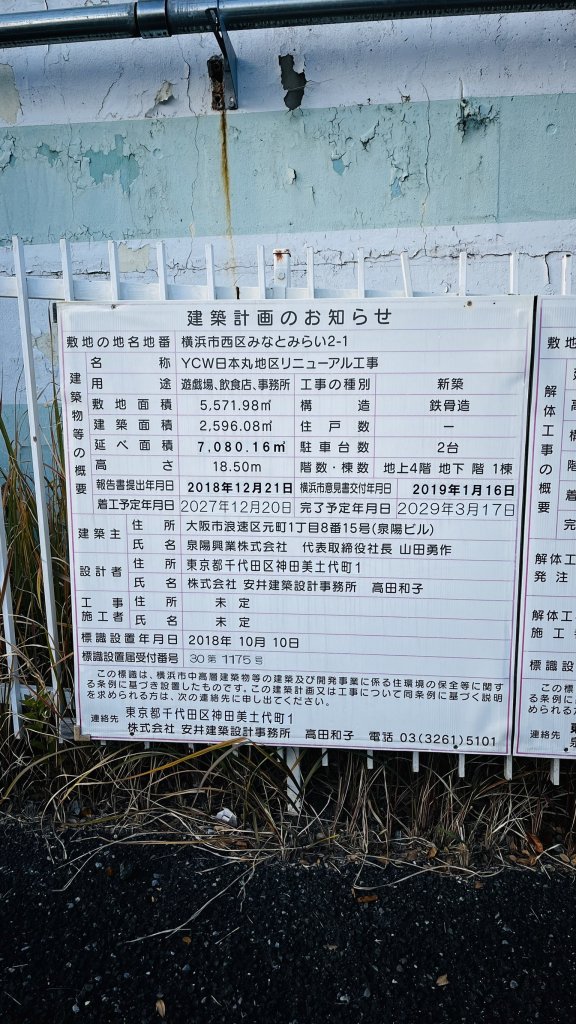 建築計画のお知らせ
敷地の地名地番 横浜市西区みなとみらい2-1
建築物等の概要
名称 YCW日本丸地区リニューアル工事
用途 遊戯場、飲食店、事務所 工事の種別 新築
敷地面積 5,571.98㎡ 構造 鉄骨造
建築面積 2,596.08㎡ 住戸数 ー
延べ面積 7,080.16㎡ 駐車台数 2台
高さ 18.50m 階数・棟数 地上4階 地下 階 1棟
報告書提出年月日 2018年12月21日 横浜市意見書交付年月日 2019年1月16日
着工予定年月日 2027年12月20日 完了予定年月日 2029年3月17日
建築主 住所 大阪市浪速区元町1丁目8番15号(泉陽ビル)
氏名 泉陽興業株式会社 代表取締役社長 山田勇作
設計者 住所 東京都千代田区神田美土代町1
氏名 株式会社 安井建築設計事務所 高田和子
工事施工者 住所 未定
氏名 未定
標識設置年月日 2018年 10月 10日
標識設置届受付番号 30第 1175号
この標識は、横浜市中高層建築物等の建築及び開発事業に係る住環境の保全等に関す
る条例に基づき設置したものです。この建築計画又は工事について同条例に基づく説明
を求められる方は、次の連絡先に申し出てください。
連絡先 東京都千代田区神田美土代町1
株式会社 安井建築設計事務所 高田和子 電話 03(3261)5101
敷地の
解体工事の概要
解体工
発注
解体工
施工
標識設
この
る条例
められ
連絡先